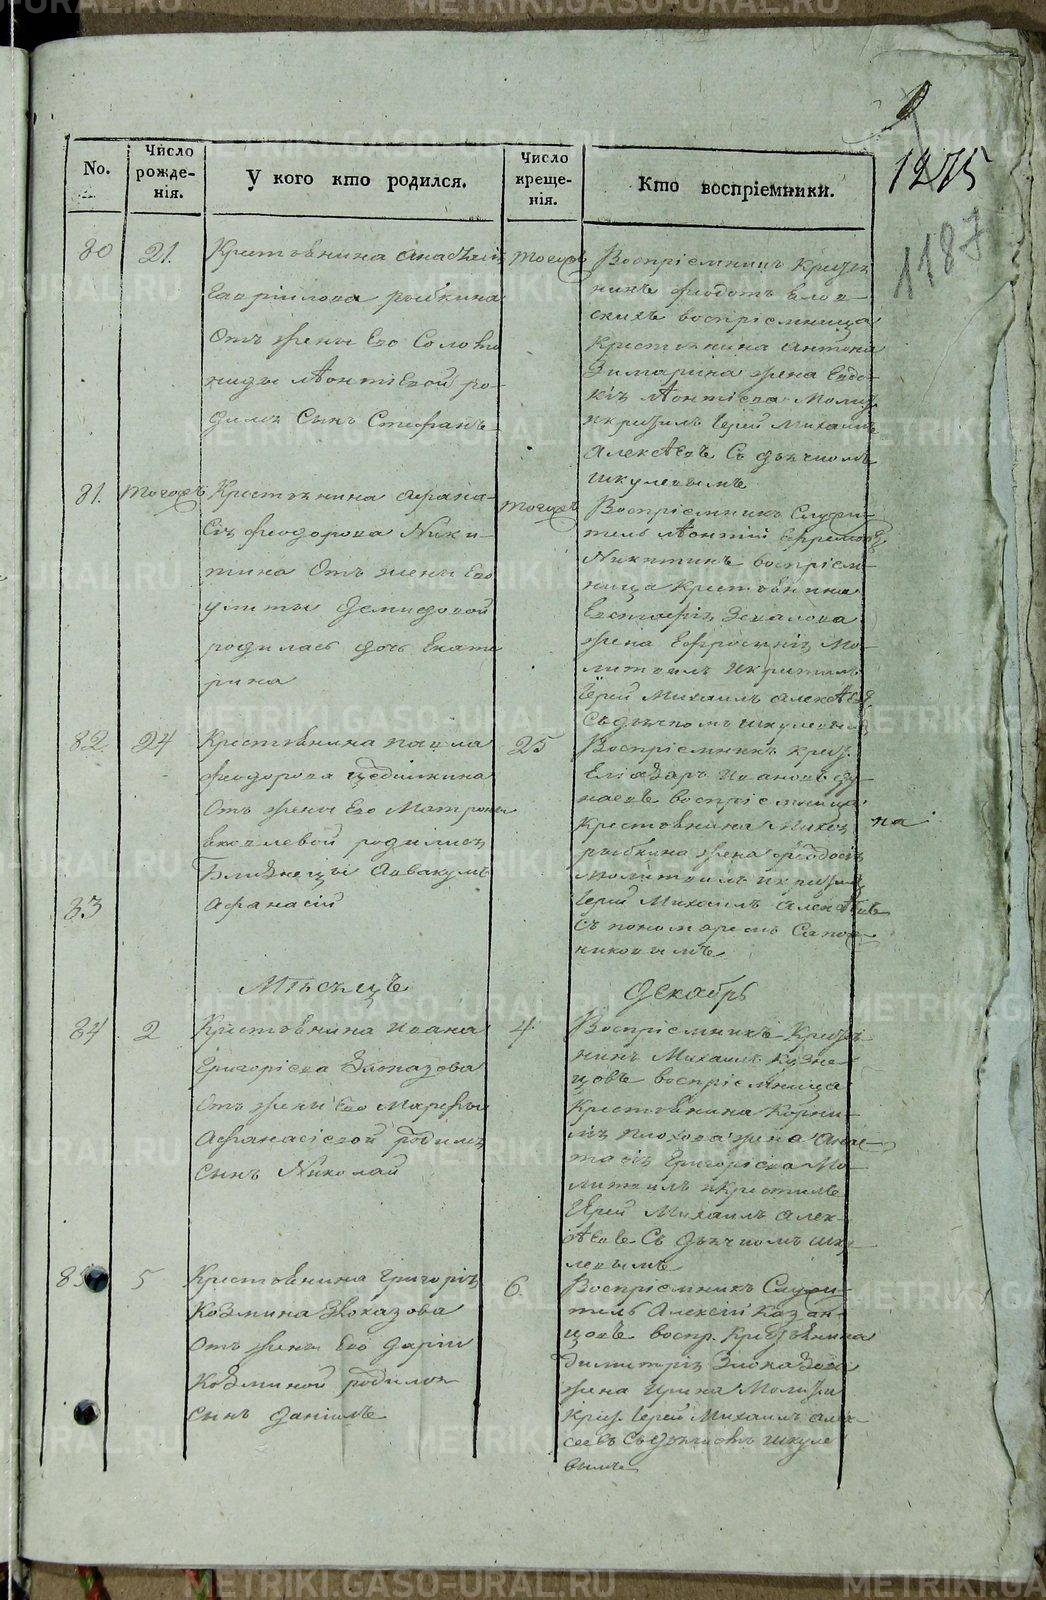 METRIKI.GASO-URAL.RU
1275
1187
No.
Число рожде-нія.
У кого кто родился.
Число креще-нія.
Кто воспріемники.
80
21.
Крестьянина
Гавріилова Рыбкина
Отъ жены Его Соломо
ниды Леонтіевой ро-
дился Сынъ Стефанъ
тогожъ
Воспріемникъ Кресть
нинъ Федотъ
воспріемница
Крестьянина Антона
Зимарина жена Евдо-
кія Леонтіева Молит.
икрестилъ Іерей Михаилъ
Алексѣевъ Съ дьячкомъ
Шкулевымъ
81.
тогожъ
Крестьянина Афана-
сія Феодорова Ники-
тина Отъ жены Его
Улиты Демидовой
родилась дочь Екате
рина
тогожъ
Воспріемникъ Служи-
тель Леонтій Ефремовъ
Никитинъ воспріем-
ница Крестьянина
Евстафія
жена Ефросинія Мо-
литвилъ Икрестилъ
Іерей Михаилъ Алексѣев
Съ дьячкомъ Шкулевым
82.
24
Крестьянина Павла
Феодорова
Отъ жены Его Матроны
Яковлевой родились
Близнецы Аввакумъ
25
Воспріемникъ Крест.
Еліазаръ Ивановъ Ду-
наевъ воспріемница
Крестьянина
на
Рыбкина жена Феодосія
Молитвилъ
83
Афанасій
Іерей Михаилъ Алексѣевъ
Съ пономаремъ Сапож-
никовымъ
Мѣсяцъ
Декабрь
84
2
Крестьянина Ивана
Григоріева Злоказова
Отъ жены Его Марфы
Афанасіевой родился
Сынъ Николай
4.
Воспріемникъ Крестья
нинъ Михаилъ Кузне-
цовъ воспріемница
Крестьянина Корни-
лія Плохова жена Анас-
тасія Григоріева Мо-
литвилъ икрестилъ
Іерей Михаилъ Алек-
сѣевъ Съ дьячкомъ Шку
левымъ
85
5
Крестьянина Григорія
Козмина Злоказова
Отъ жены Его Даріи
Козминой родился
Сынъ Даніилъ
6.
Воспріемникъ Служи-
тель Алексій Казан-
цовъ воспр. Крестьянина
Димитрія Злоказова
жена Ирина Молитв
Крест. Іерей Михаилъ Алек-
сеевъ Съ дьячкомъ Шкуле
вымъ